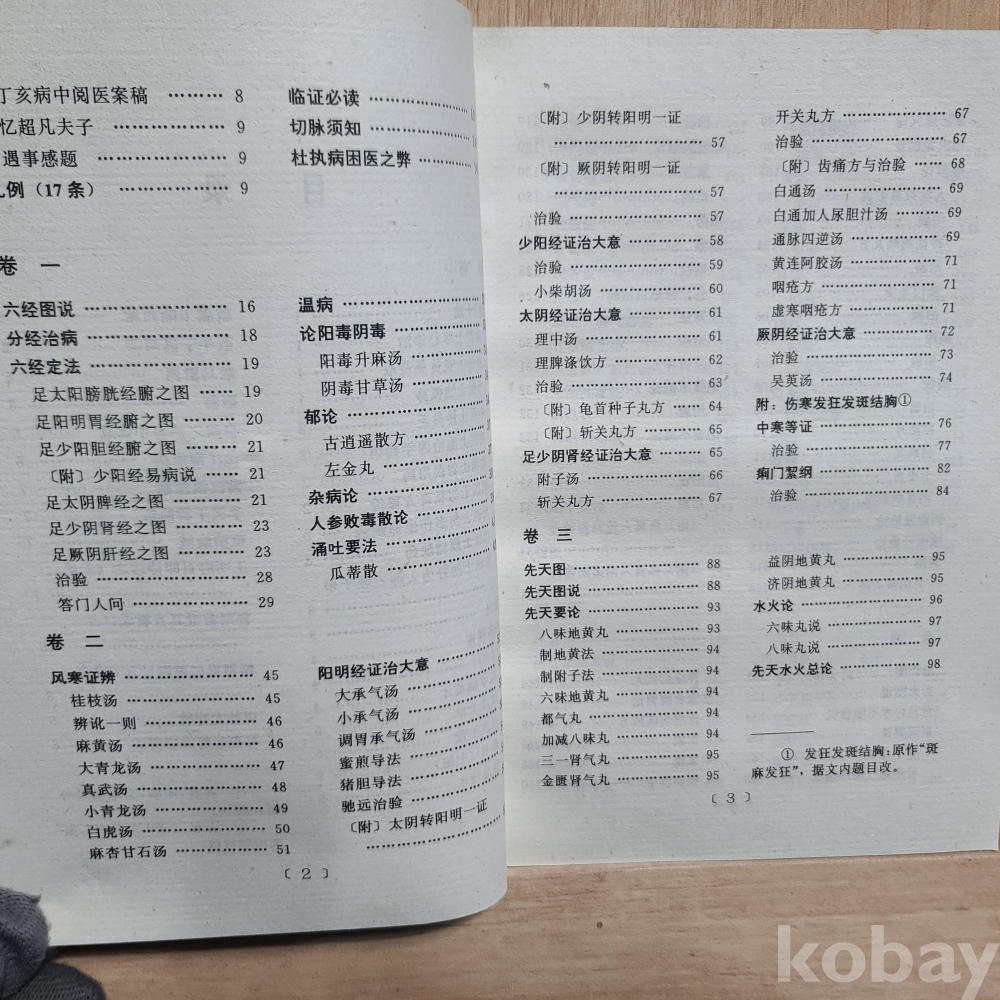 丁亥病中阅医案稿 ……… 8
忆超凡夫子 ……………… 9
遇事感题 ……………… 9
凡例（17 条） …………… 9
临证必读 ………………
切脉须知 ………………
杜执病困医之弊 …………
卷 一
六经图说 ……………… 16
分经治病 ……………… 18
六经定法 ……………… 19
足太阳膀胱经腑之图 …… 19
足阳明胃经腑之图 ……… 20
足少阳胆经腑之图 ……… 21
〔附〕少阳经易病说 …… 21
足太阴脾经之图 ………… 21
足少阴肾经之图 ………… 23
足厥阴肝经之图 ………… 23
治验 …………………… 28
答门人问 ……………… 29
温病 …………………
论阳毒阴毒 ……………
阳毒升麻汤 ……………
阴毒甘草汤 ……………
郁论 …………………
古逍遥散方 ……………
左金丸 ………………
杂病论 ………………
人参败毒散论 …………
涌吐要法 ………………
瓜蒂散 ………………
卷 二
风寒证辨 ……………… 45
桂枝汤 ………………… 45
辨讹一则 ……………… 46
麻黄汤 ………………… 46
大青龙汤 ……………… 47
真武汤 ………………… 48
小青龙汤 ……………… 49
白虎汤 ………………… 50
麻杏甘石汤 …………… 51
阳明经证治大意 …………
大承气汤 ………………
小承气汤 ………………
调胃承气汤 ……………
蜜煎导法 ………………
猪胆导法 ………………
驰远治验 ………………
〔附〕太阴转阳明一证
……………………
〔2〕
〔附〕少阴转阳明一证
………………… 57
〔附〕厥阴转阳明一证
………………… 57
治验 ………………… 57
少阳经证治大意 ………… 58
治验 ………………… 59
小柴胡汤 ……………… 60
太阴经证治大意 ………… 61
理中汤 ………………… 61
理脾涤饮方 …………… 62
治验 ………………… 63
〔附〕龟首种子丸方 …… 64
〔附〕斩关丸方 ………… 65
足少阴肾经证治大意 …… 65
附子汤 ………………… 66
斩关丸方 ……………… 67
开关丸方 ……………… 67
治验 ………………… 67
〔附〕齿痛方与治验 …… 68
白通汤 ………………… 69
白通加人尿胆汁汤 ……… 69
通脉四逆汤 …………… 69
黄连阿胶汤 …………… 71
咽疮方 ………………… 71
虚寒咽疮方 …………… 71
厥阴经证治大意 ………… 72
治验 ………………… 73
吴萸汤 ………………… 74
附：伤寒发狂发斑结胸①
中寒等证 ……………… 76
治验 ………………… 77
痢门絜纲 ……………… 82
治验 ………………… 84
卷 三
先天图 ………………… 88
先天图说 ……………… 88
先天要论 ……………… 93
八味地黄丸 …………… 93
制地黄法 ……………… 94
制附子法 ……………… 94
六味地黄丸 …………… 94
都气丸 ………………… 94
加减八味丸 …………… 94
三一肾气丸 …………… 95
金匮肾气丸 …………… 95
益阴地黄丸 …………… 95
济阴地黄丸 …………… 95
水火论 ………………… 96
六味丸说 ……………… 97
八味丸说 ……………… 97
先天水火总论 ………… 98
① 发狂发斑结胸：原作“斑
麻发狂”，据文内题目改。
〔3〕
kobay